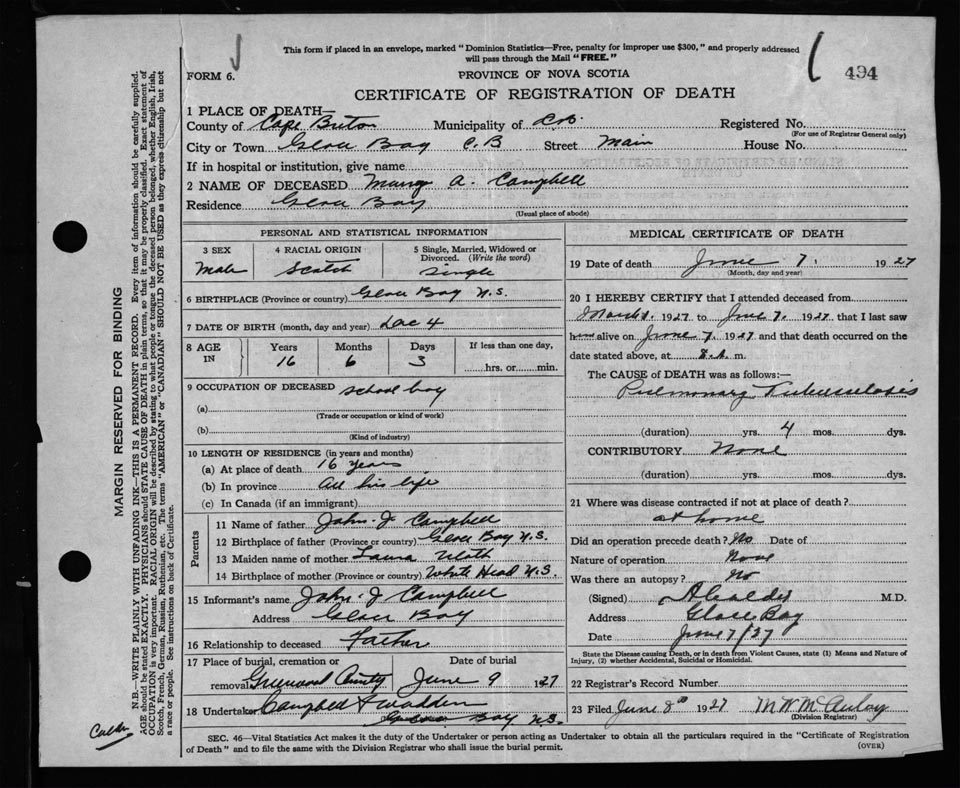 This form if placed in an envelope, marked "Dominion Statistics—Free, penalty for improper use $300," and properly addressed
will pass through the Mail "FREE."
FORM 6.
PROVINCE OF NOVA SCOTIA
494
CERTIFICATE OF REGISTRATION OF DEATH
1 PLACE OF DEATH—
County of Cape Breton Municipality of C.B. Registered No.
(For use of Registrar General only)
City or Town Glace Bay C.B Street Main House No.
If in hospital or institution, give name
2 NAME OF DECEASED A. Campbell
Residence Glace Bay
(Usual place of abode)
PERSONAL AND STATISTICAL INFORMATION
3 SEX 4 RACIAL ORIGIN 5 Single, Married, Widowed or Divorced. (Write the word)
Male Scotch Single
6 BIRTHPLACE (Province or country) Glace Bay N.S.
7 DATE OF BIRTH (month, day and year) Dec 4
8 AGE IN Years Months Days If less than one day,
16 6 3 hrs. or min.
9 OCCUPATION OF DECEASED school boy
(a)
(Trade or occupation or kind of work)
(b)
(Kind of industry)
10 LENGTH OF RESIDENCE (in years and months)
(a) At place of death 16 years
(b) In province All his life
(c) In Canada (if an immigrant)
Parents
11 Name of father John J Campbell
12 Birthplace of father (Province or country) Glace Bay N.S.
13 Maiden name of mother Laura
14 Birthplace of mother (Province or country) White Head N.S.
15 Informant's name John J Campbell
Address Glace Bay
16 Relationship to deceased Father
17 Place of burial, cremation or removal Greenwood Cemetery Date of burial June 9 1927
18 Undertaker Campbell
Glace Bay N.S.
MEDICAL CERTIFICATE OF DEATH
19 Date of death June 7, 1927
(Month, day and year)
20 I HEREBY CERTIFY that I attended deceased from
March 1. 1927 to June 7. 1927 that I last saw
h alive on June 7 1927 and that death occurred on
date stated above, at 8. A. m.
The CAUSE of DEATH was as follows:—
Pulmonary Tuberculosis
(duration) yrs. 4 mos. dys.
CONTRIBUTORY None
(duration) yrs. mos. dys.
21 Where was disease contracted if not at place of death?
at home
Did an operation precede death? No Date of
Nature of operation None
Was there an autopsy? No
(Signed) M.D.
Address Glace Bay
Date June 7/27
State the Disease causing Death, or in death from Violent Causes, state (1) Means and Nature of
Injury, (2) whether Accidental, Suicidal or Homicidal.
22 Registrar's Record Number
23 Filed June 8th 1927 M W McAulay
(Division Registrar)
SEC. 46—Vital Statistics Act makes it the duty of the Undertaker or person acting as Undertaker to obtain all the particulars required in the "Certificate of Registration
of Death" and to file the same with the Division Registrar who shall issue the burial permit.
(OVER)
MARGIN RESERVED FOR BINDING
N.B.—WRITE PLAINLY WITH UNFADING INK—THIS IS A PERMANENT RECORD. Every item of information should be carefully supplied.
AGE should be stated EXACTLY. PHYSICIANS should STATE CAUSE OF DEATH in plain terms, so that it may be properly classified. Exact statement of
OCCUPATION is very important. RACIAL ORIGIN will be described by stating to what people or tongue the deceased person belonged, whether English, Irish,
Scotch, French, German, Russian, Ruthenian, etc. The terms "AMERICAN" or "CANADIAN" SHOULD NOT BE USED as they express citizenship but not
a race or people. See instructions on back of Certificate.